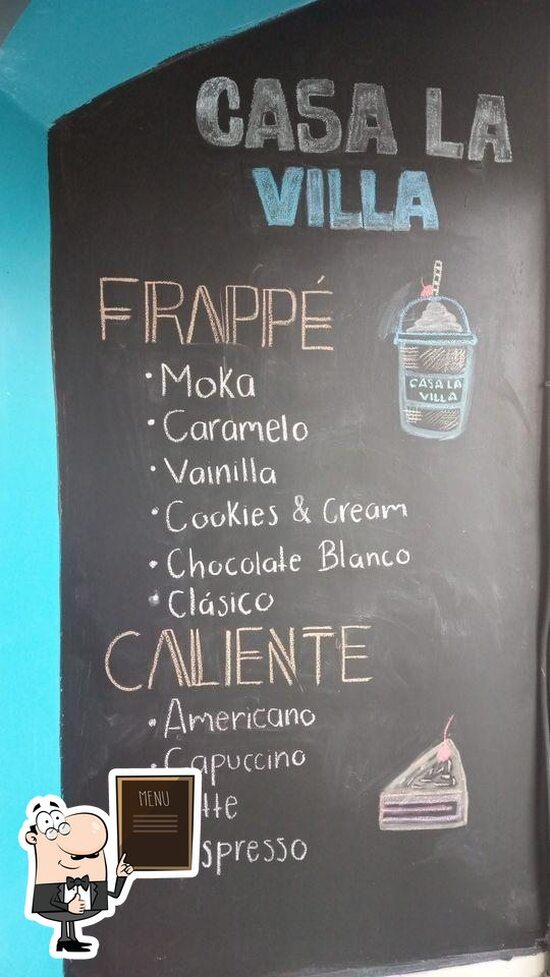 CASA LA
VILLA
FRAPPÉ
· Moka
· Caramelo
· Vainilla
· Cookies & Cream
· Chocolate Blanco
· Clásico
CASA LA
VILLA
CALIENTE
· Americano
· Capuccino
tte
spresso
MENU